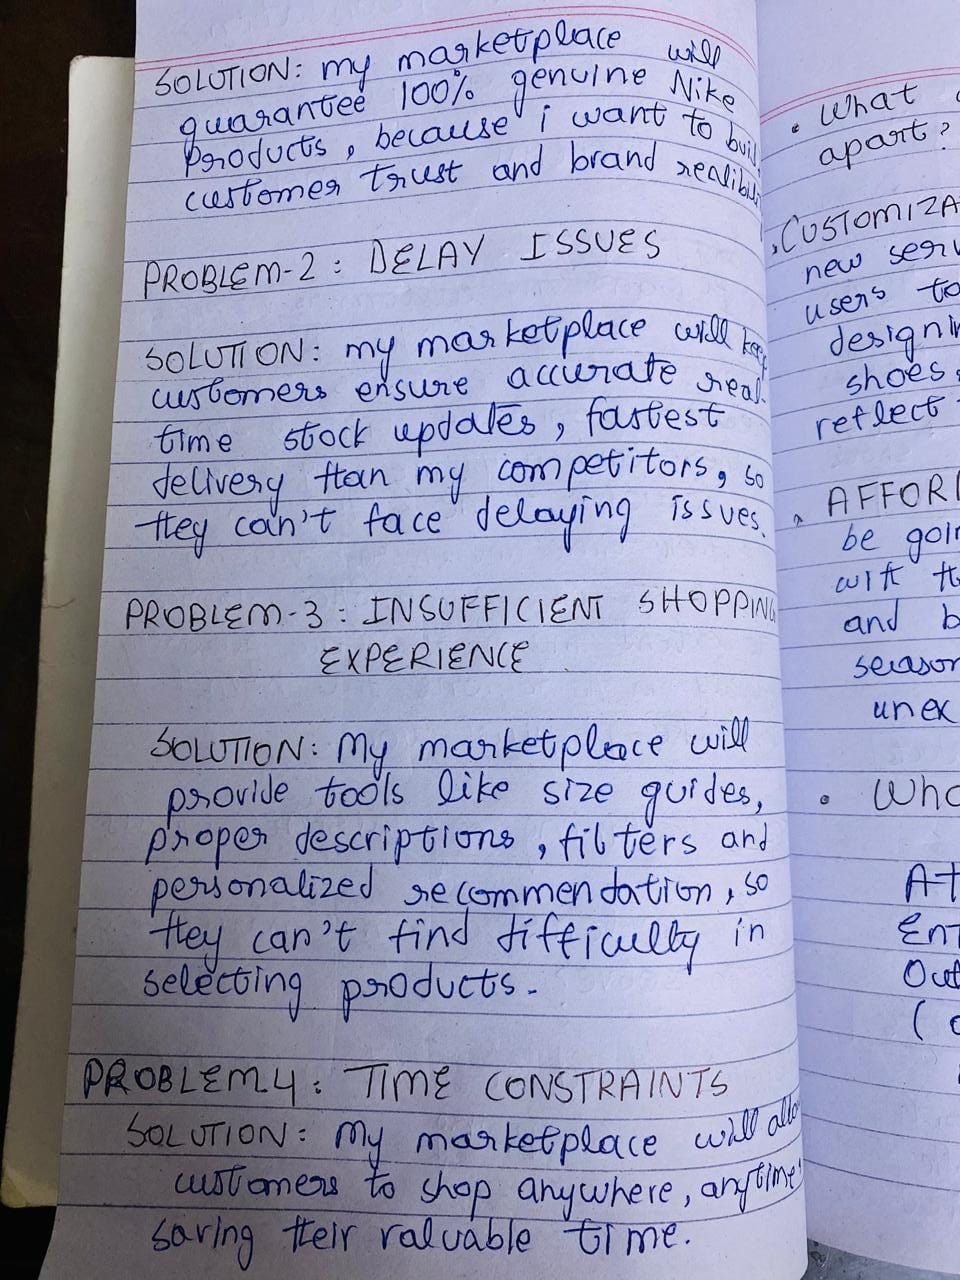 SOLUTION: my marketplace will
guarantee 100% genuine Nike
products, because i want to
customer trust and brand
PROBLEM-2: DELAY ISSUES
SOLUTION: my marketplace will keep
customers ensure accurate real-
time stock updates, fastest
delivery than my competitors, so
they can't face delaying issues.
PROBLEM-3: INSUFFICIENT SHOPPING
EXPERIENCE
SOLUTION: My marketplace will
provide tools like size guides,
proper descriptions, filters and
personalized recommendation, so
they can't find difficulty in
selecting products.
PROBLEM-4: TIME CONSTRAINTS
SOLUTION: My marketplace will
customers to shop anywhere, anytime
saving their valuable time.
• What
apart?
new
users to
shoes,
reflect
be
and
•